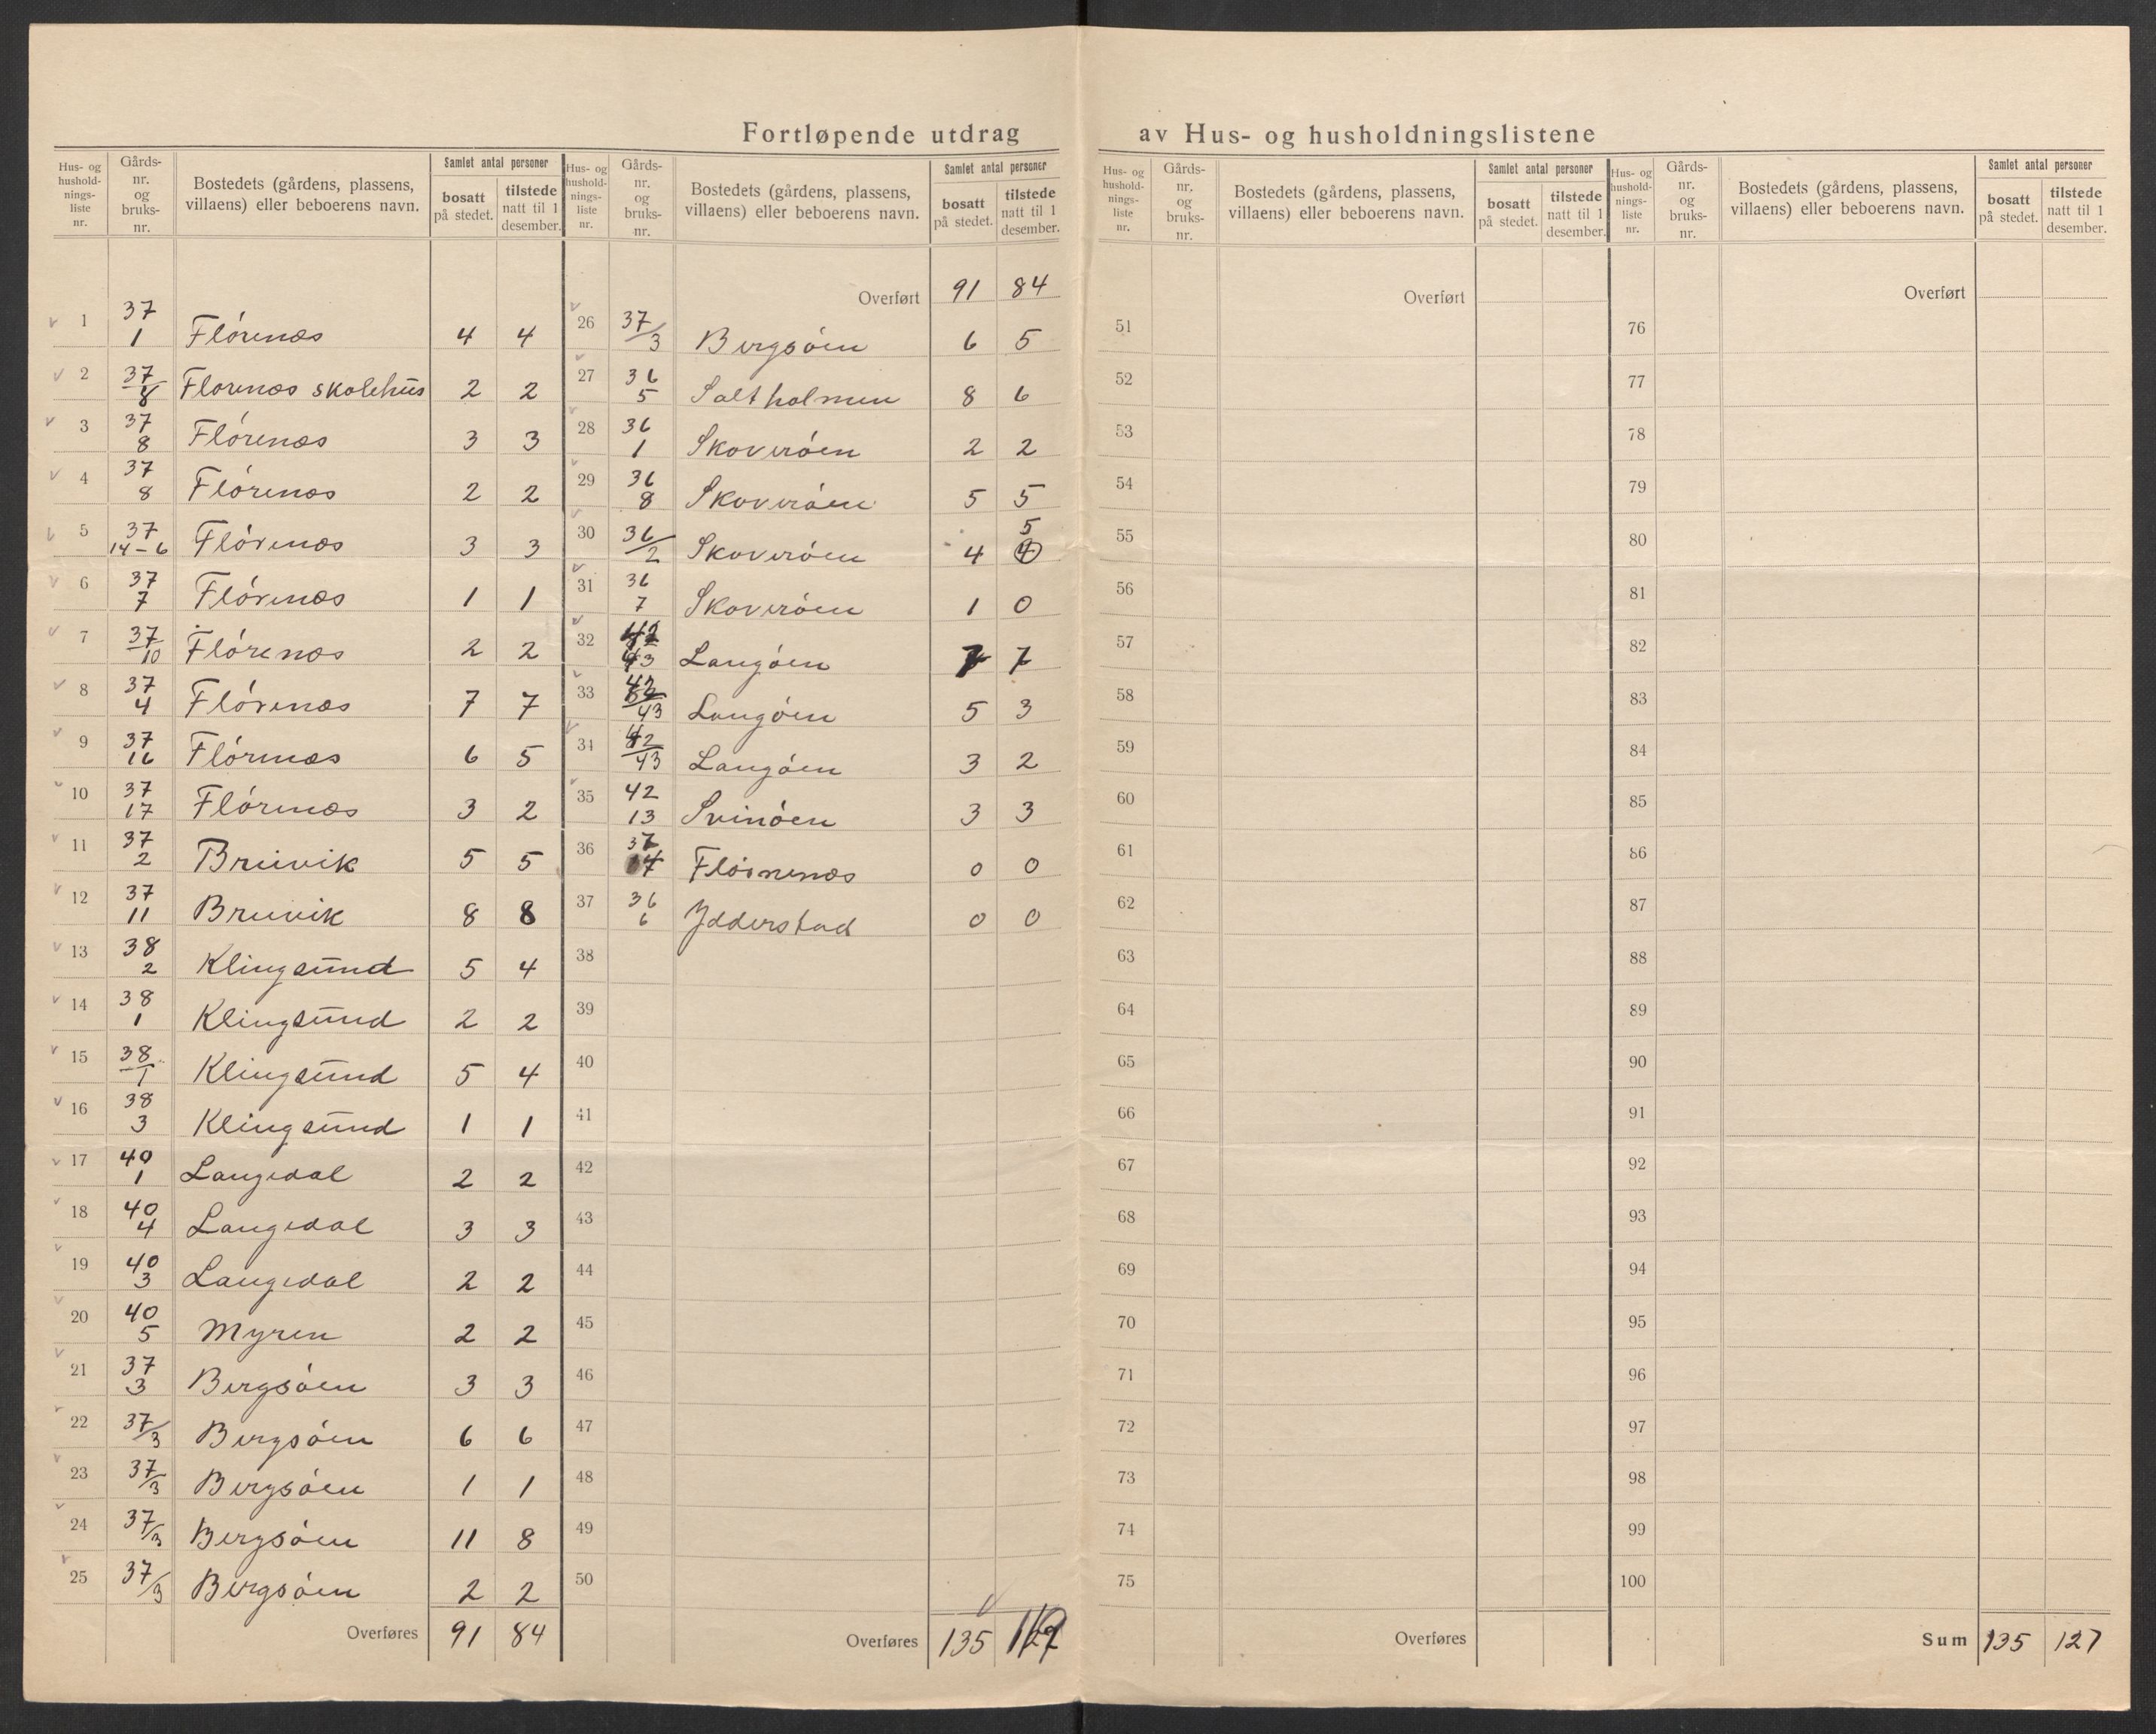 Fortløpende utdrag av Hus- og husholdningslistene
Hus- og hushold-nings-liste nr. | Gårds-nr. og bruks-nr. | Bostedets (gårdens, plassens, villaens) eller beboerens navn. | Samlet antal personer | bosatt på stedet. | tilstede natt til 1 desember.
1 37 1 Flórenæs 4 4
2 37/8 Florenæs skolehüs 2 2
3 37 8 Flórenæs 3 3
4 37 8 Flórenæs 2 2
5 37 14-6 Flórenæs 3 3
6 37 7 Flórenæs 1 1
7 37/10 Flórenæs 2 2
8 37 4 Flórenæs 7 7
9 37 16 Flórenæs 6 5
10 37 17 Flórenæs 3 2
11 37 2 Breivik 5 5
12 37 11 Breivik 8 8
13 38 2 Klingsünd 5 4
14 38 1 Klingsünd 2 2
15 38/1 Klingsünd 5 4
16 38 3 Klingsünd 1 1
17 40 1 Langedal 2 2
18 40 4 Langedal 3 3
19 40 3 Langedal 2 2
20 40 5 Myren 2 2
21 37 3 Bergsóen 3 3
22 37/3 Bergsóen 6 6
23 37/3 Bergsóen 1 1
24 37/3 Bergsóen 11 8
25 37/3 Bergsóen 2 2
Overføres 91 84
Hus- og hushold-nings-liste nr. | Gårds-nr. og bruks-nr. | Bostedets (gårdens, plassens, villaens) eller beboerens navn. | Samlet antal personer | bosatt på stedet. | tilstede natt til 1 desember.
Overført 91 84
26 37/3 Bergsóen 6 5
27 36 5 Saltholmen 8 6
28 36 1 Skoveróen 2 2
29 36 8 Skoveróen 5 5
30 36/2 Skoveróen 4 5 4
31 36 7 Skoveróen 1 0
32 42 43 Langóen 7 7
33 42 43 Langóen 5 3
34 42/43 Langóen 3 2
35 42 13 Svinóen 3 3
36 37 Flórnenæs 0 0
37 36 6 Ydderstad 0 0
38
39
40
41
42
43
44
45
46
47
48
49
50
Overføres 135
Hus- og hushold-nings-liste nr. | Gårds-nr. og bruks-nr. | Bostedets (gårdens, plassens, villaens) eller beboerens navn. | Samlet antal personer | bosatt på stedet. | tilstede natt til 1 desember.
Overført
51
52
53
54
55
56
57
58
59
60
61
62
63
64
65
66
67
68
69
70
71
72
73
74
75
Overføres
Hus- og hushold-nings-liste nr. | Gårds-nr. og bruks-nr. | Bostedets (gårdens, plassens, villaens) eller beboerens navn. | Samlet antal personer | bosatt på stedet. | tilstede natt til 1 desember.
Overført
76
77
78
79
80
81
82
83
84
85
86
87
88
89
90
91
92
93
94
95
96
97
98
99
100
Sum 135 127